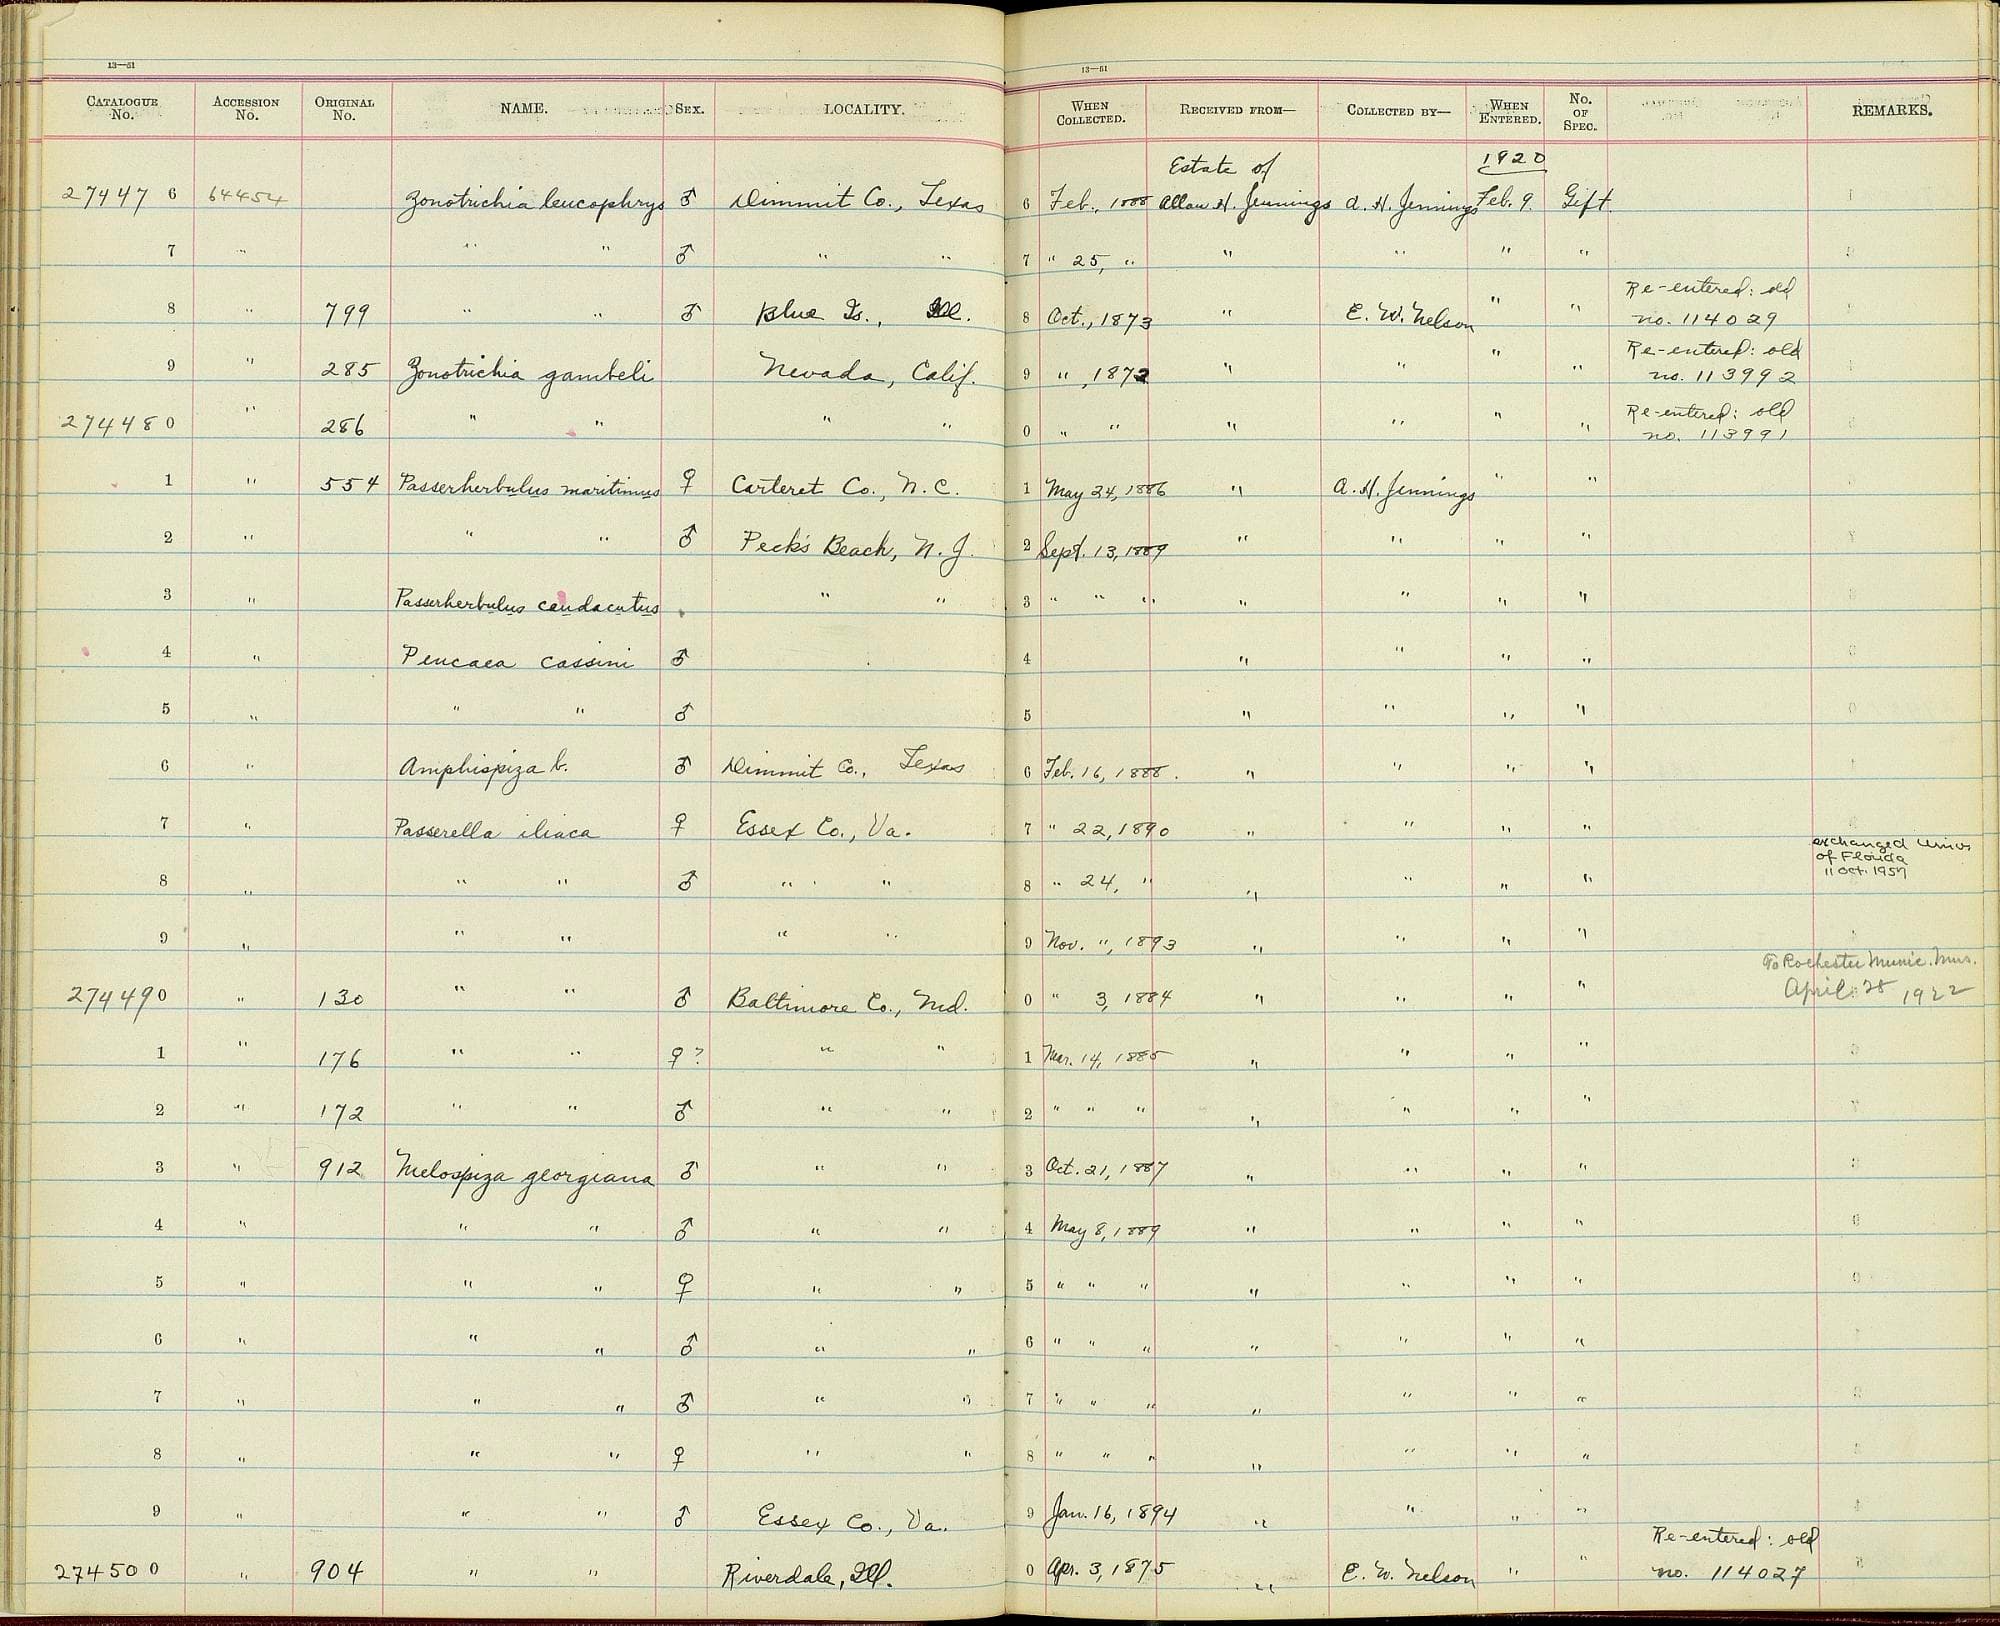 13—51
13—51
CATALOGUE No. ACCESSION No. ORIGINAL No. NAME. SEX. LOCALITY. WHEN COLLECTED. RECEIVED FROM— COLLECTED BY— WHEN ENTERED. No. OF SPEC. REMARKS.
Estate of 1920
27447 6 64454 Zonotrichia leucophrys ♂ Dimmit Co., Texas 6 Feb., 1888 Allan H. Jennings A. H. Jennings Feb. 9. Gift.
7 " " " ♂ " " 7 " 25, " " " " "
8 " 799 " " ♂ Blue Is., Ill. 8 Oct., 1873 " E. W. Nelson " " Re-entered: old no. 114029
9 " 285 Zonotrichia gambeli Nevada, Calif. 9 " , 1872 " " " " Re-entered: old no. 113992
27448 0 " 286 " " " " 0 " " " " " " Re-entered: old no. 113991
1 " 554 Passerherbulus maritimus ♀ Carteret Co., N.C. 1 May 24, 1886 " A. H. Jennings " "
2 " " " ♂ Peck's Beach, N. J. 2 Sept. 13, 1889 " " " "
3 " Passerherbulus caudacutus " " 3 " " " " " " "
4 " Peucaea cassini ♂ 4 " " " "
5 " " " ♂ 5 " " " "
6 " Amphispiza b. ♂ Dimmit Co., Texas 6 Feb. 16, 1888. " " " "
7 " Passerella iliaca ♀ Essex Co., Va. 7 " 22, 1890 " " " "
8 " " " ♂ " " 8 " 24, " " " " " exchanged Univ of Florida 11 Oct. 1957
9 " " " " " 9 Nov. ", 1893 " " " "
27449 0 " 130 " " ♂ Baltimore Co., Md. 0 " 3, 1884 " " " " To Rochester Munic. Mus. April 28 1922
1 " 176 " " ♀? " " 1 Mar. 14, 1885 " " " "
2 " 172 " " ♂ " " 2 " " " " " " "
3 " 912 Melospiza georgiana ♂ " " 3 Oct. 21, 1887 " " " "
4 " " " ♂ " " 4 May 8, 1889 " " " "
5 " " " ♀ " " 5 " " " " " " "
6 " " " ♂ " " 6 " " " " " " "
7 " " " ♂ " " 7 " " " " " " "
8 " " " ♀ " " 8 " " " " " " "
9 " " " ♂ Essex Co., Va. 9 Jan. 16, 1894 " " " "
27450 0 " 904 " " Riverdale, Ill. 0 Apr. 3, 1875 " E. W. Nelson " " Re-entered: old no. 114027